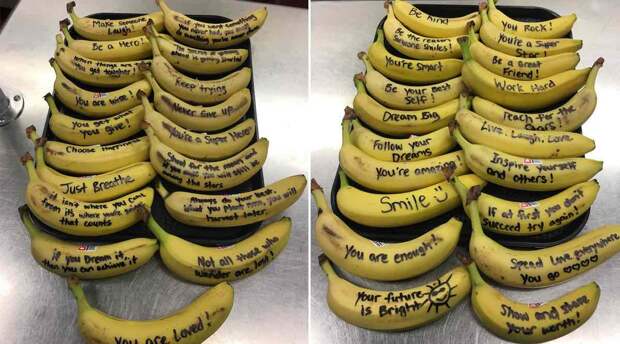 Make someone
Laugh!
Be a Hero!
When things are
you get tougher!
You are wise!
You get what
you give!
Choose Happiness
Just Breathe
it isn't where you came
from it's where you're going
that counts
if you Dream it,
then you can achieve it
you are Loved!
you want something
you never had, you must do
something you've never
The secret of getting
ahead is getting started
Keep trying
Never Give up
You're a Super Hero
Shoot for the moon and
if you miss you will still be
in the stars
Always do your best.
What you plant now, you will
harvest later.
Not all those who
wander are lost!
Be Kind
Be the reason
Someone Smiles!
You're Smart
Be your Best
Self!
Dream Big
Follow your
Dreams
You're amazing!
Smile
You are enough!
Your future
is Bright
You Rock!
You're a Super
Star!
Be a Great
Friend!
Work Hard
Reach for the
Stars!
Live, Laugh, Love
Inspire yourself
and others!
If at first you don't
Succeed try again!
Spread Love everywhere
You go
Show and share
your worth!